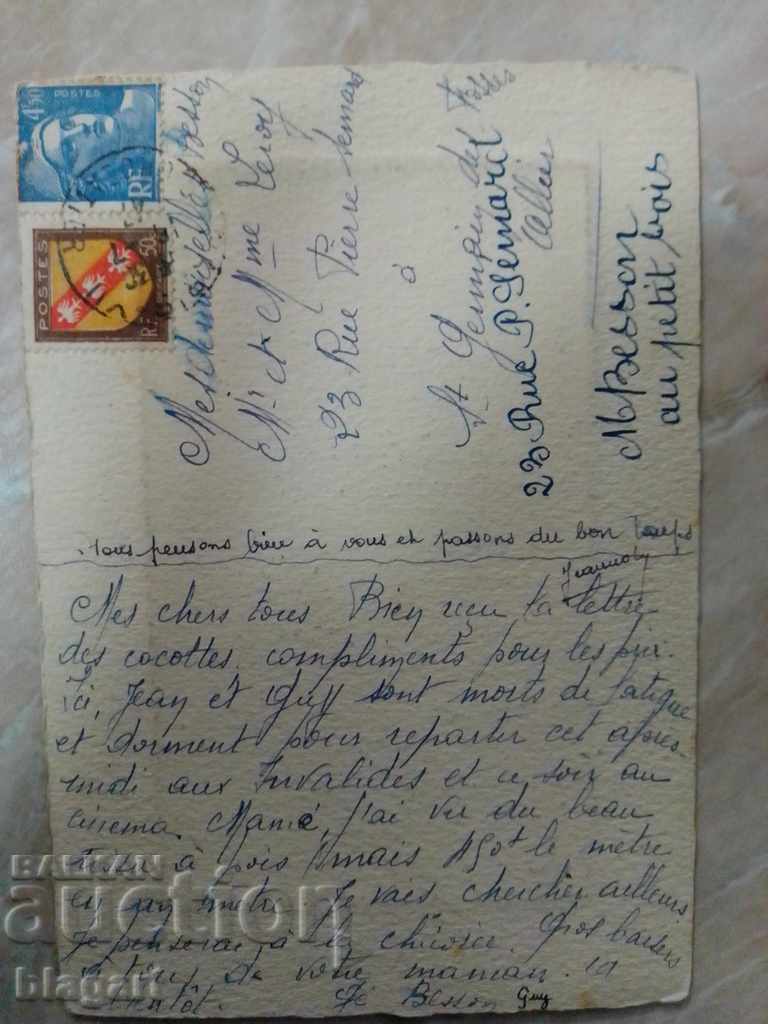 4f50
POSTES
RF
POSTES
50c
RF
Mesdemoiselles Besson
Mr et Mme Leroy
23 Rue Pierre Semard
à
St Germain des Fossés
Allier
23 Rue P. Semard
M Besson
au petit bois
Nous pensons bien à vous et passons du bon temps
Mes chers tous Bien reçu ta lettre
des cocottes. compliments pour les prix.
Ici, Jean et Guy sont morts de fatigue
et dorment pour repartir cet après
midi aux Invalides et ce soir au
cinema. Mamé, j'ai vu du beau
tissu à pois mais 450f le mètre
en mètre. Je vais chercher ailleurs
Je penserai à la chicorée. Gros baisers
à tous de votre maman. a
bientôt. Besson Guy
BALKAN
auction
blagart